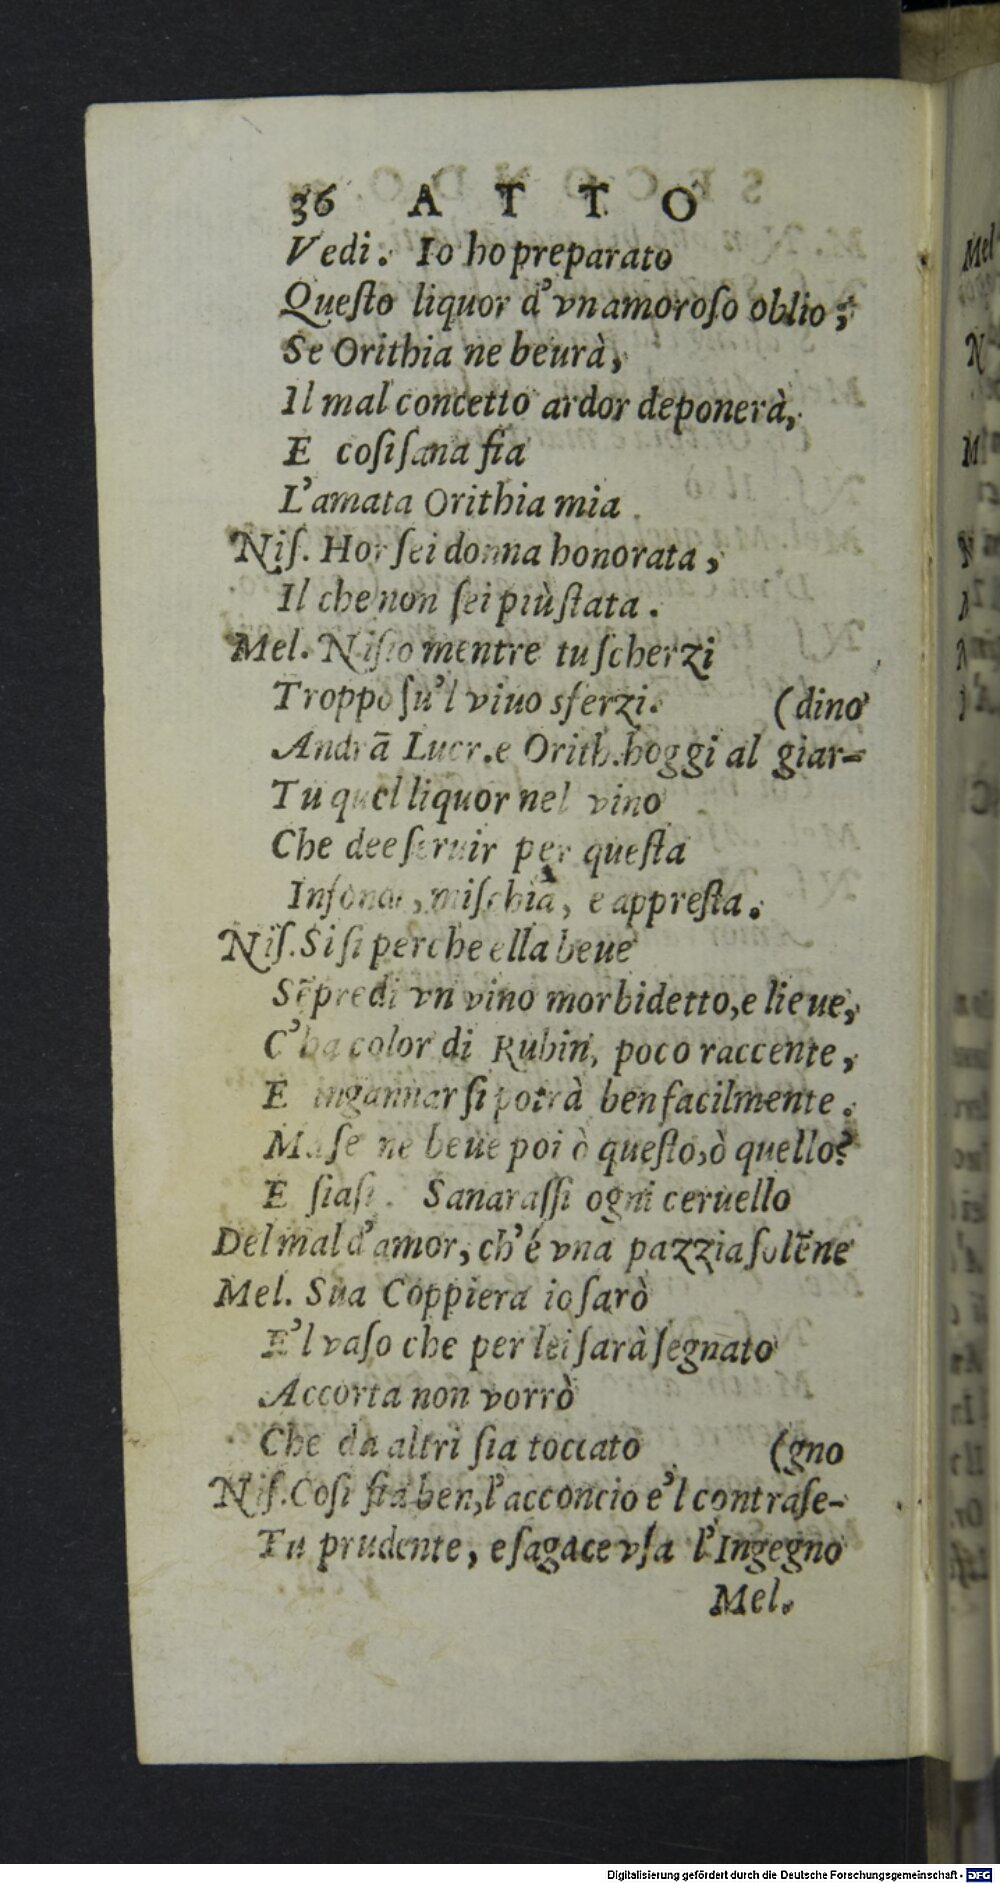 36 ATTO
Vedi. Io ho preparato
Queſto liquor d'vn amoroſo oblio;
Se Orithia ne beurà,
Il mal concetto ardor deponerà,
E coſi ſana fia
L'amata Orithia mia.
Niſ. Hor ſei donna honorata,
Il che non ſei più ſtata.
Mel. Niſio mentre tu ſcherzi
Troppo ſu'l viuo sferzi. (dino
Andrā Lucr. e Orith. hoggi al giar-
Tu quel liquor nel vino
Che dee ſeruir per queſta
Infondi, miſchia, e appreſta.
Niſ. Si ſi perche ella beue
Sēpre di vn vino morbidetto, e lieue,
C'ha color di Rubin, poco raccente,
E ingannar ſi potrà ben facilmente.
Ma ſe ne beue poi ò queſto, ò quello?
E ſiaſi. Sanaraſſi ogni ceruello
Del mal d'amor, ch'é vna pazzia ſolēne
Mel. Sua Coppiera io ſarò
E'l vaſo che per lei ſarà ſegnato
Accorta non vorrò
Che da altri ſia toccato (gno
Niſ. Coſi ſta ben, l'acconcio e'l contraſe-
Tu prudente, e ſagace vſa l'Ingegno
Mel.
Digitalisierung gefördert durch die Deutsche Forschungsgemeinschaft - DFG